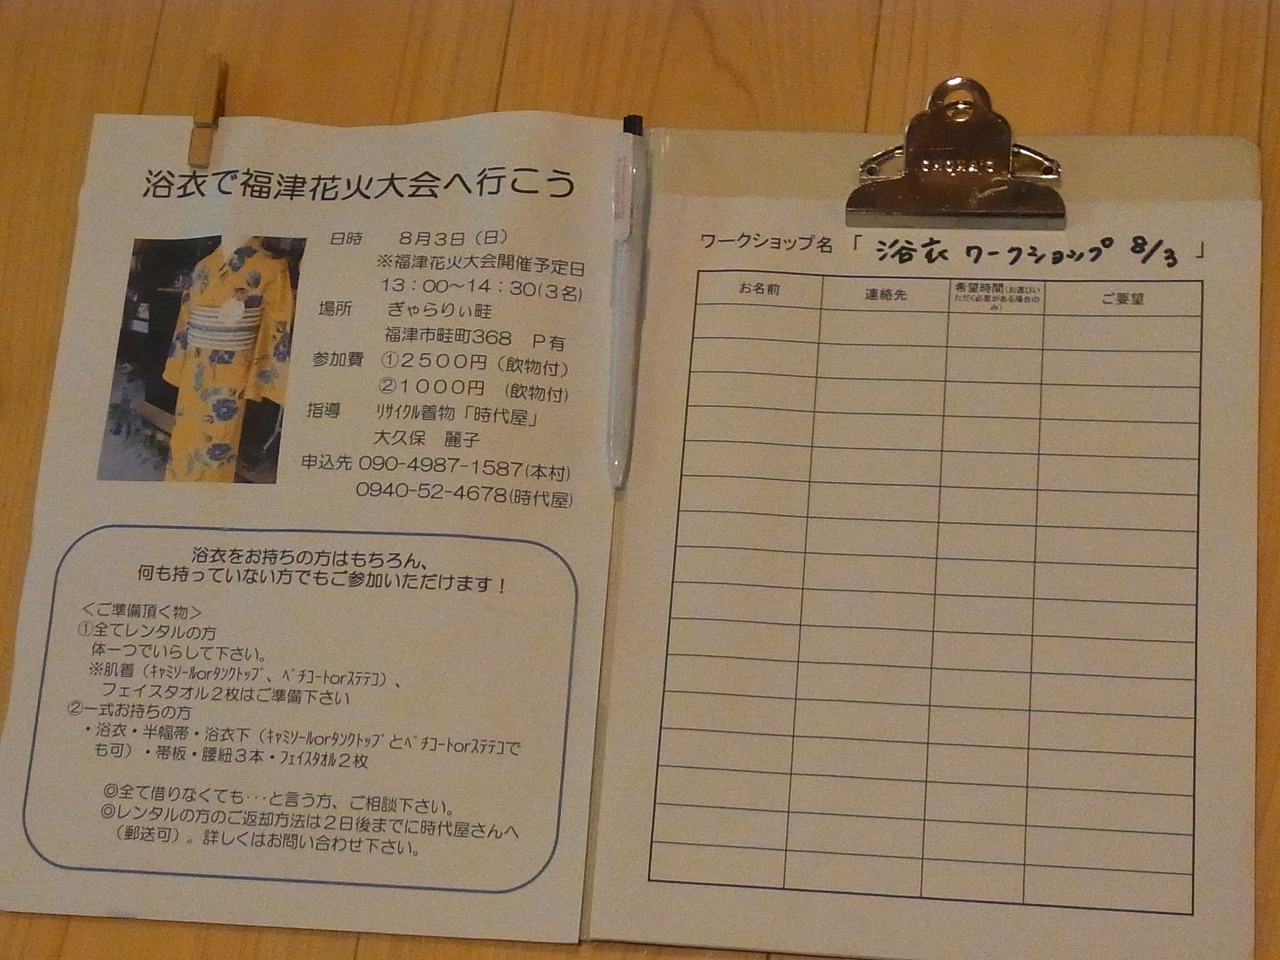 浴衣で福津花火大会へ行こう
日時 8月3日（日）
※福津花火大会開催予定日
13：00～14：30(3名)
場所 ぎゃらりぃ畦
福津市畦町368 P有
参加費 ①2500円（飲物付）
②1000円 （飲物付）
指導 ﾘｻｲｸﾙ着物「時代屋」
大久保 麗子
申込先 090-4987-1587(本村)
0940-52-4678(時代屋)
浴衣をお持ちの方はもちろん、
何も持っていない方でもご参加いただけます！
＜ご準備頂く物＞
①全てレンタルの方
体一つでいらして下さい。
※肌着（ｷｬﾐｿｰﾙorﾀﾝｸﾄｯﾌﾟ、ﾍﾟﾁｺｰﾄorｽﾃﾃｺ）、
フェイスタオル2枚はご準備下さい
②一式お持ちの方
・浴衣・半幅帯・浴衣下（ｷｬﾐｿｰﾙorﾀﾝｸﾄｯﾌﾟとﾍﾟﾁｺｰﾄorｽﾃﾃｺで
も可）・帯板・腰紐3本・ﾌｪｲｽﾀｵﾙ2枚
◎全て借りなくても･･･と言う方、ご相談下さい。
◎レンタルの方のご返却方法は2日後までに時代屋さんへ
（郵送可）。詳しくはお問い合わせ下さい。
ワークショップ名「浴衣ワークショップ 8/3」
お名前 連絡先 希望時間(お選びいただく必要がある場合のみ) ご要望